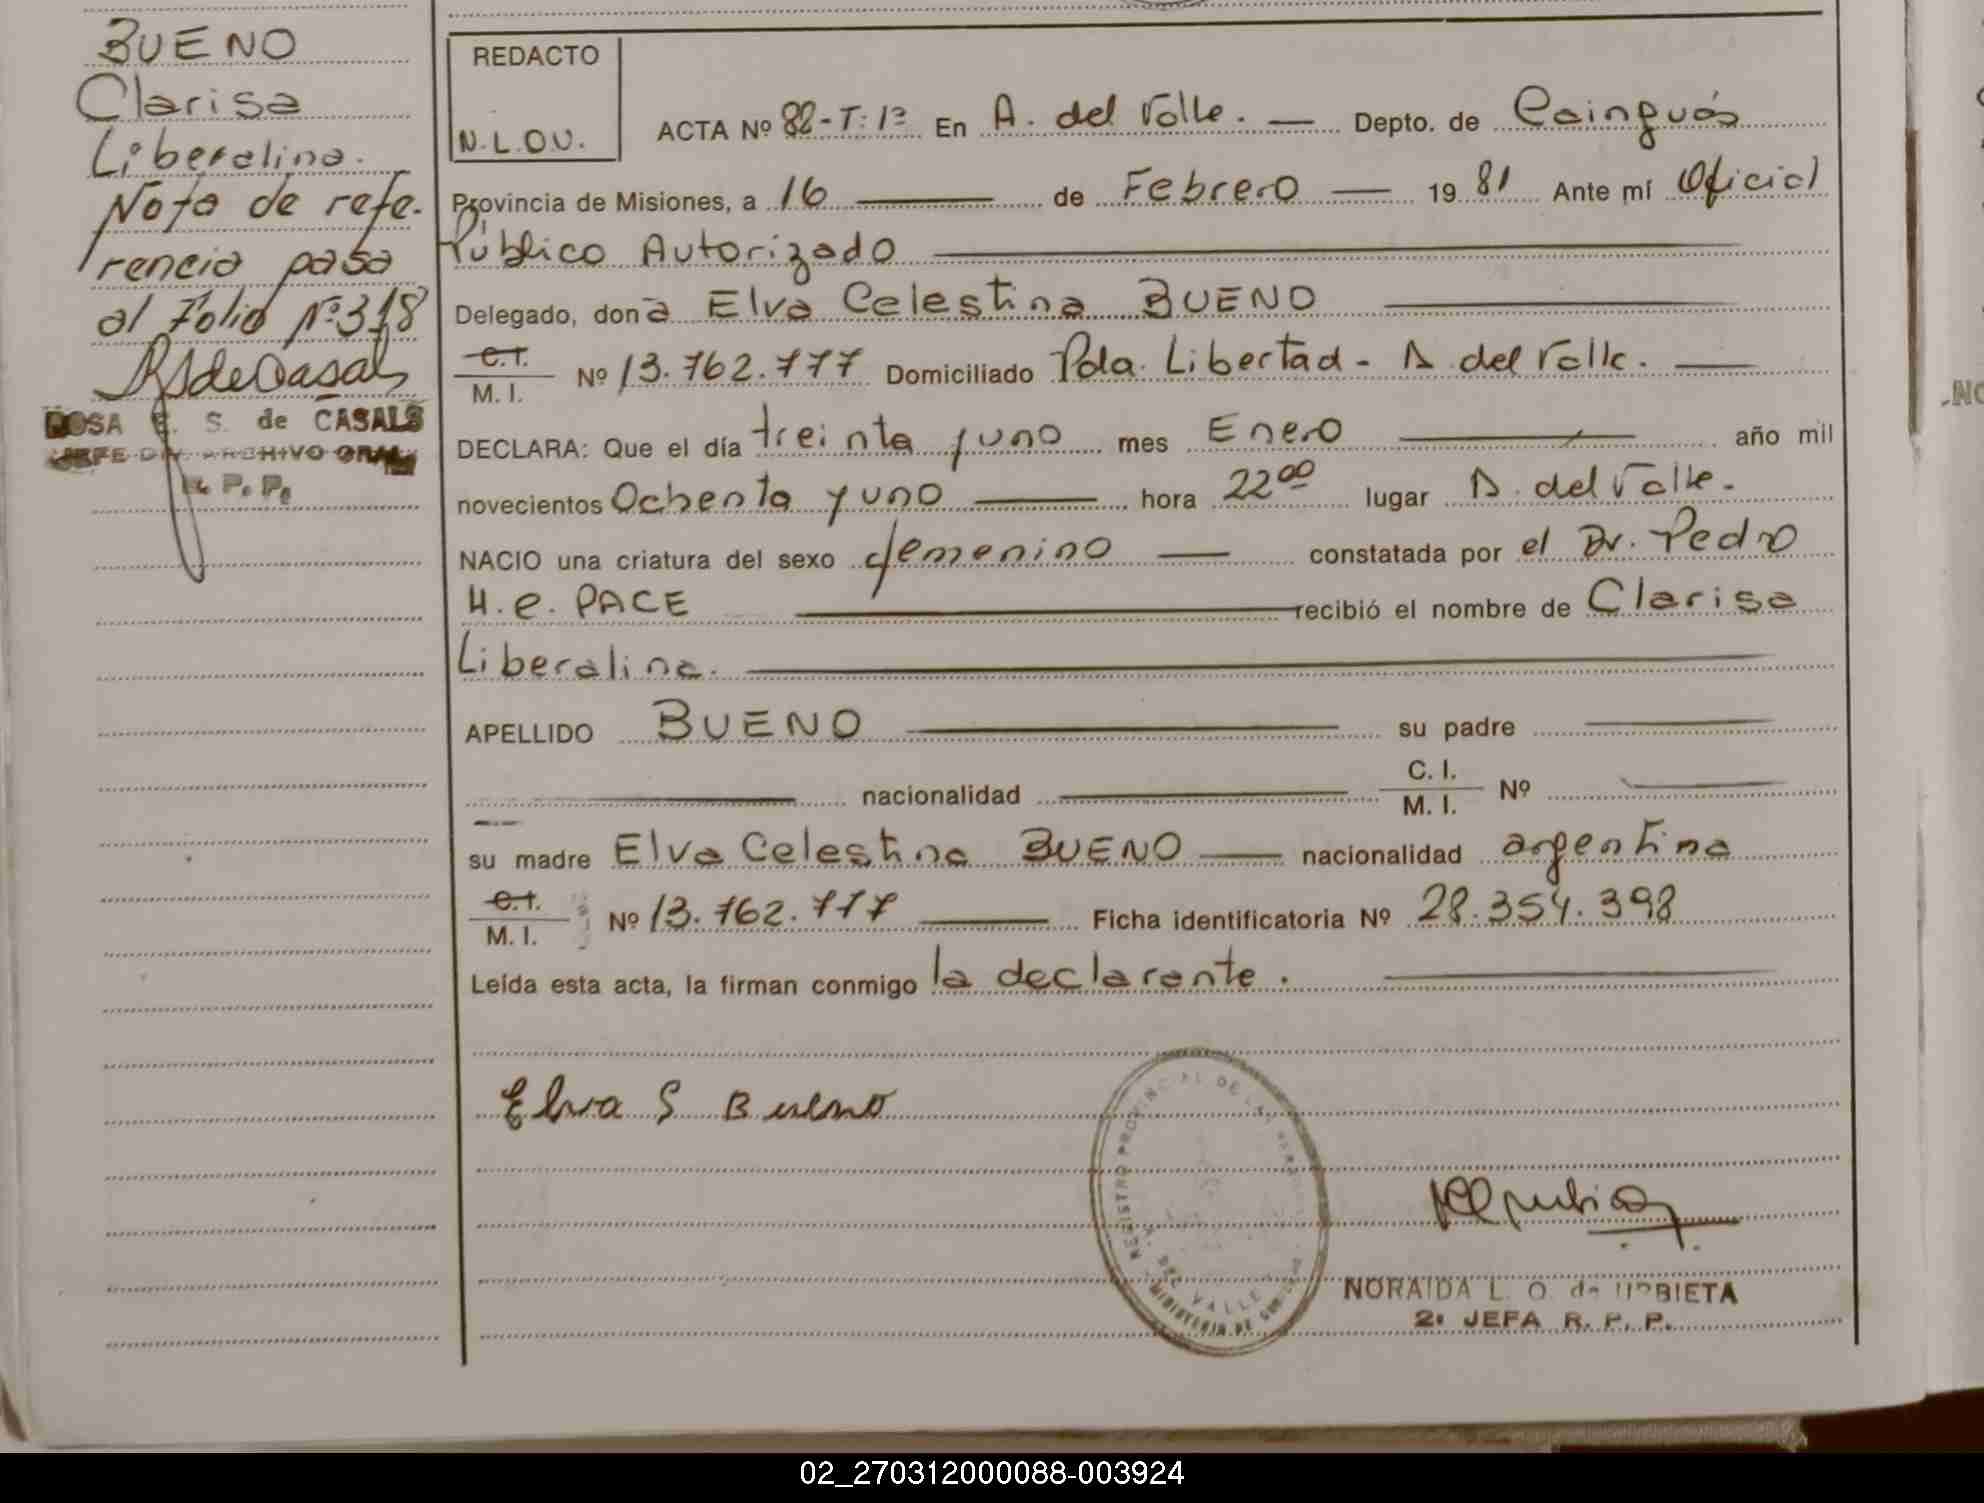 BUENO
Clarisa
Liberalina.
Nota de refe-
rencia pasa
al Folio Nº 318
ROSA E. S. de CASALS
JEFE DIV. ARCHIVO GRAL
R. P. P.
REDACTO
N.L.O.U.
ACTA Nº 82-T:1º En A. del Valle. — Depto. de Cainguás
Provincia de Misiones, a 16 — de Febrero — 19 81 Ante mí Oficial
Público Autorizado
Delegado, dona Elva Celestina BUENO
C.I.
M. I. Nº 13.762.777 Domiciliado Pda. Libertad - A. del Valle. —
DECLARA: Que el día treinta y uno mes Enero — año mil
novecientos Ochenta y uno — hora 22 00 lugar A. del Valle.
NACIO una criatura del sexo femenino — constatada por el Dr. Pedro
H. C. PACE — recibió el nombre de Clarisa
Liberalina. —
APELLIDO BUENO — su padre —
— nacionalidad — C. I.
M. I. Nº —
su madre Elva Celestina BUENO — nacionalidad argentina
C.I.
M. I. Nº 13.762.777 — Ficha identificatoria Nº 28.354.398
Leída esta acta, la firman conmigo la declarante. —
Elva S Bueno
REGISTRO PROVINCIAL DE LAS PERSONAS
A. DEL VALLE
MINISTERIO DE GOBIERNO
NORAIDA L. O. de URBIETA
2ª JEFA R. P. P.
02_270312000088-003924